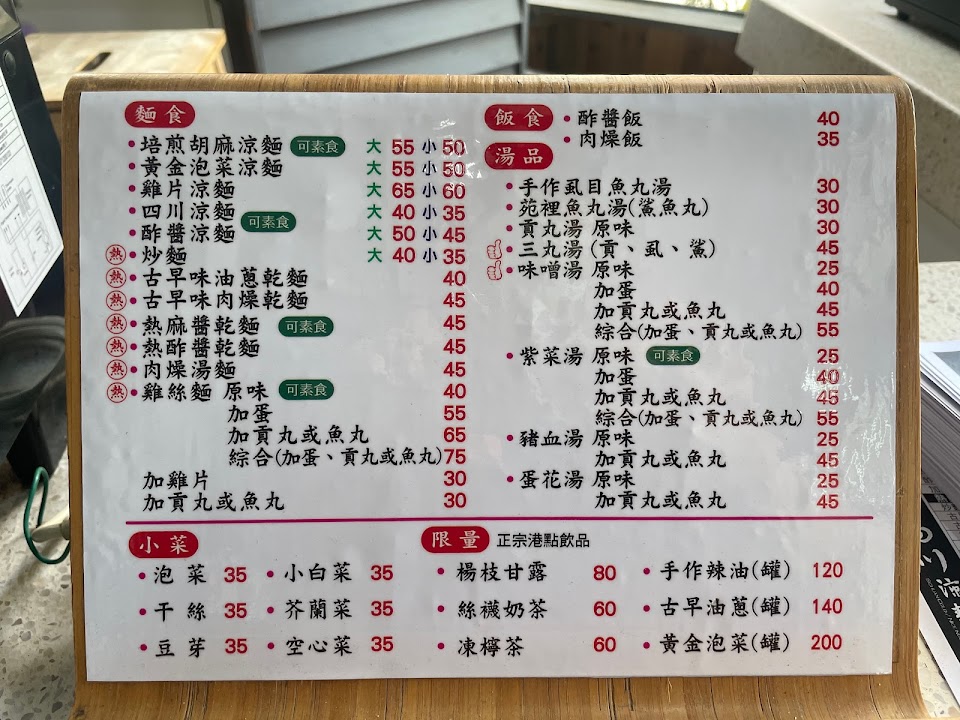 麵食
培煎胡麻涼麵 可素食 大 55 小 50
黃金泡菜涼麵 大 55 小 50
雞片涼麵 大 65 小 60
四川涼麵 可素食 大 40 小 35
酢醬涼麵 大 50 小 45
熱 炒麵 大 40 小 35
熱 古早味油蔥乾麵 40
熱 古早味肉燥乾麵 45
熱 熱麻醬乾麵 可素食 45
熱 熱酢醬乾麵 45
熱 肉燥湯麵 45
熱 雞絲麵 原味 可素食 40
加蛋 55
加貢丸或魚丸 65
綜合(加蛋、貢丸或魚丸) 75
加雞片 30
加貢丸或魚丸 30
飯食
酢醬飯 40
肉燥飯 35
湯品
手作虱目魚丸湯 30
苑裡魚丸湯(鯊魚丸) 30
貢丸湯 原味 30
三丸湯(貢、虱、鯊) 45
味噌湯 原味 25
加蛋 40
加貢丸或魚丸 45
綜合(加蛋、貢丸或魚丸) 55
紫菜湯 原味 可素食 25
加蛋 40
加貢丸或魚丸 45
綜合(加蛋、貢丸或魚丸) 55
豬血湯 原味 25
加貢丸或魚丸 45
蛋花湯 原味 25
加貢丸或魚丸 45
小菜
泡菜 35 小白菜 35
干絲 35 芥蘭菜 35
豆芽 35 空心菜 35
限量 正宗港點飲品
楊枝甘露 80 手作辣油(罐) 120
絲襪奶茶 60 古早油蔥(罐) 140
凍檸茶 60 黃金泡菜(罐) 200